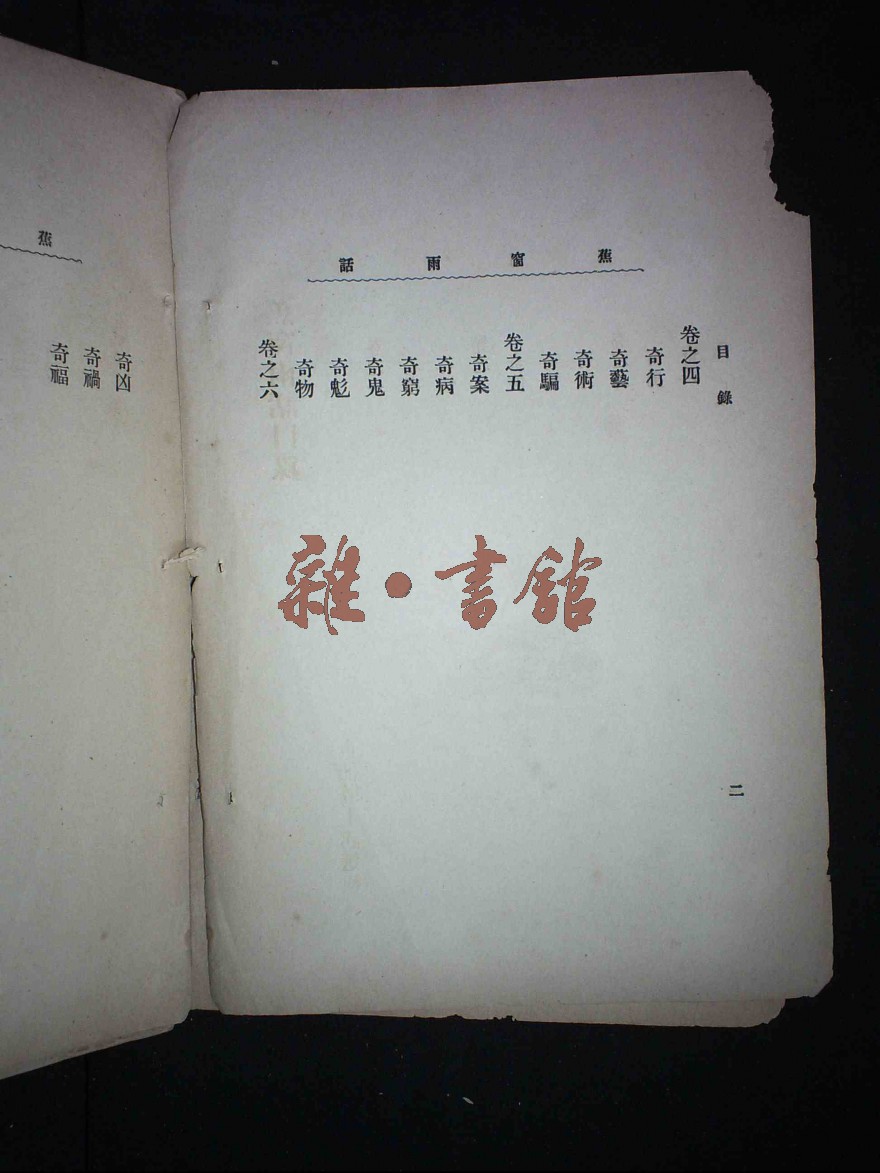 蕉窗雨話
目錄
卷之四
奇行
奇藝
奇術
奇騙
卷之五
奇案
奇病
奇窮
奇鬼
奇鬽
奇物
卷之六
二
雜·書館
蕉
奇凶
奇禍
奇福